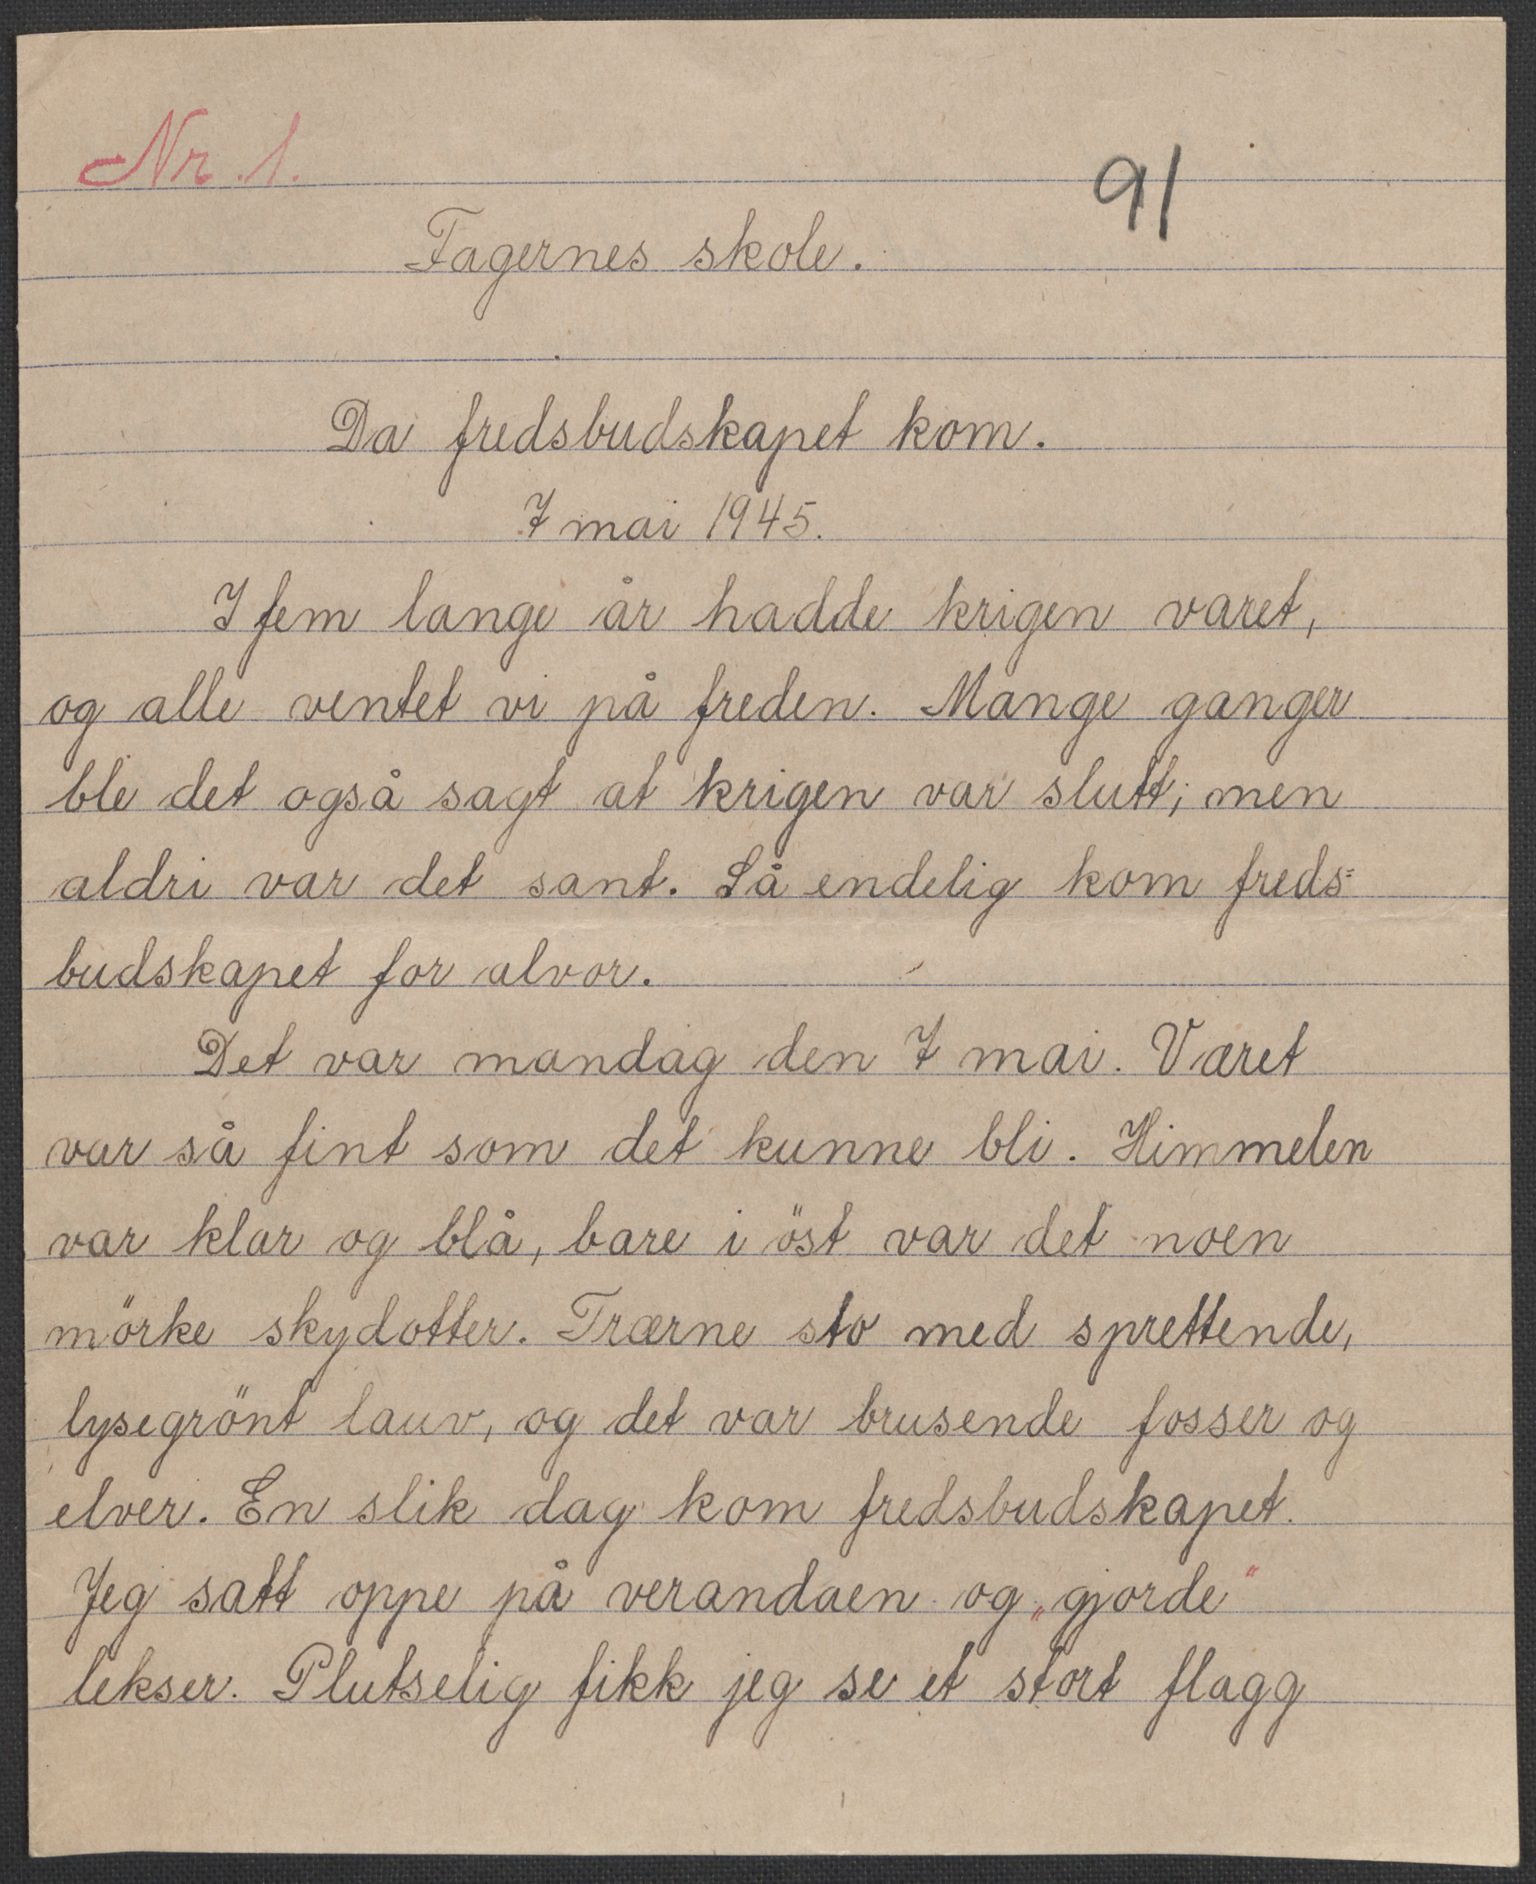 Nr. 1.
91
Fagernes skole.
Da fredsbudskapet kom.
7 mai 1945.
I fem lange år hadde krigen varet,
og alle ventet vi på freden. Mange ganger
ble det også sagt at krigen var slutt; men
aldri var det sant. Så endelig kom freds=
budskapet for alvor.
Det var mandag den 7 mai. Været
var så fint som det kunne bli. Himmelen
var klar og blå, bare i öst var det noen
mörke skydotter. Trærne sto med sprettende,
lysegrönt lauv, og det var brusende fosser og
elver. En slik dag kom fredsbudskapet.
Jeg satt oppe på verandaen og „gjorde“
lekser. Plutselig fikk jeg se et stort flagg